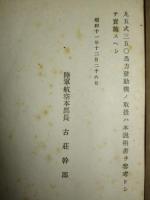 九五式三五〇馬力發動機ノ取扱ハ本説明書ヲ參考トシ
テ實施スヘシ
昭和十一年十二月二十六日
陸軍航空本部長 古莊幹郎